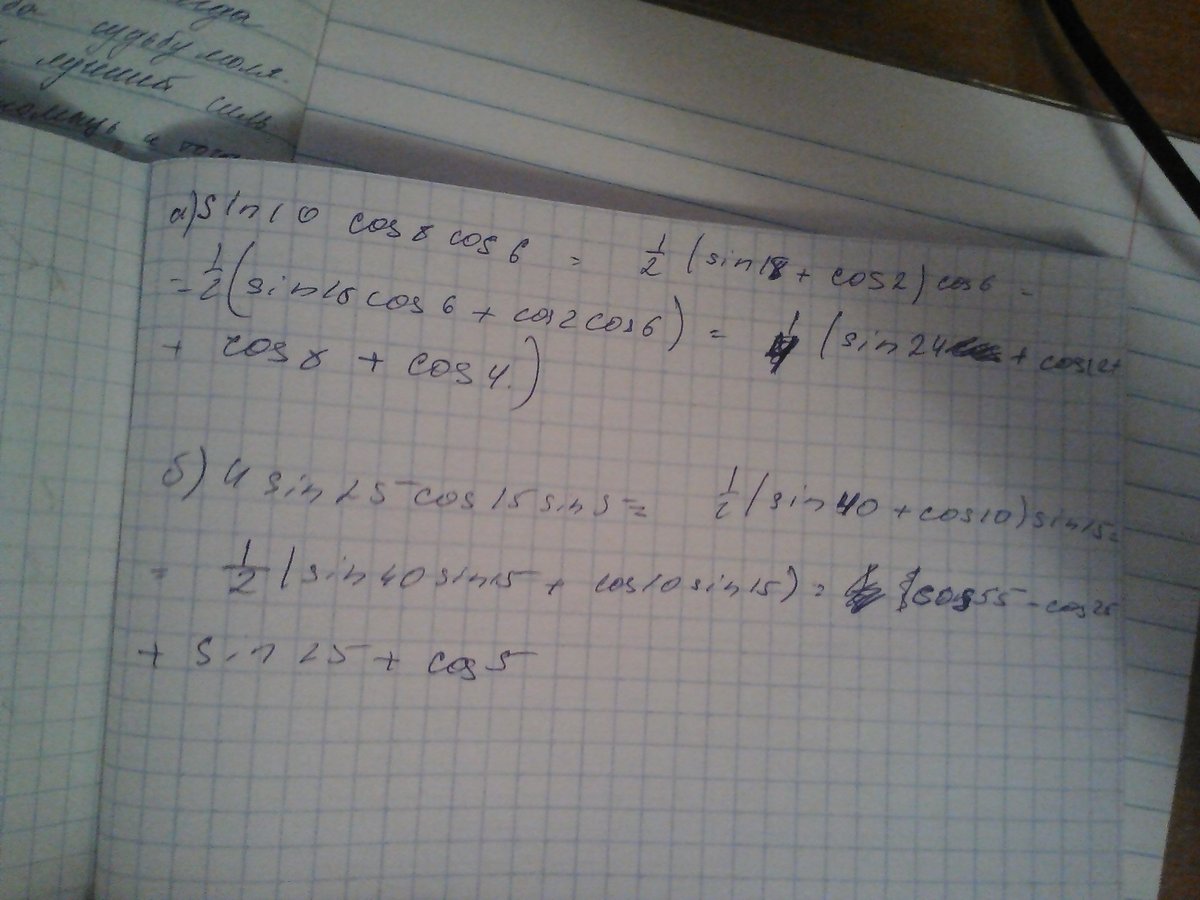 судьбу моля.
лучший
а) sin 10 cos 8 cos 6 = 1/2 (sin 18 + cos 2) cos 6 =
= 1/2 (sin 18 cos 6 + cos 2 cos 6) = (sin 24 + cos 12 +
+ cos 8 + cos 4.)
б) 4 sin 25 cos 15 sin 5 = 1/2 (sin 40 + cos 10) sin 15 =
= 1/2 (sin 40 sin 15 + cos 10 sin 15) = cos 55 - cos 25
+ sin 25 + cos 5